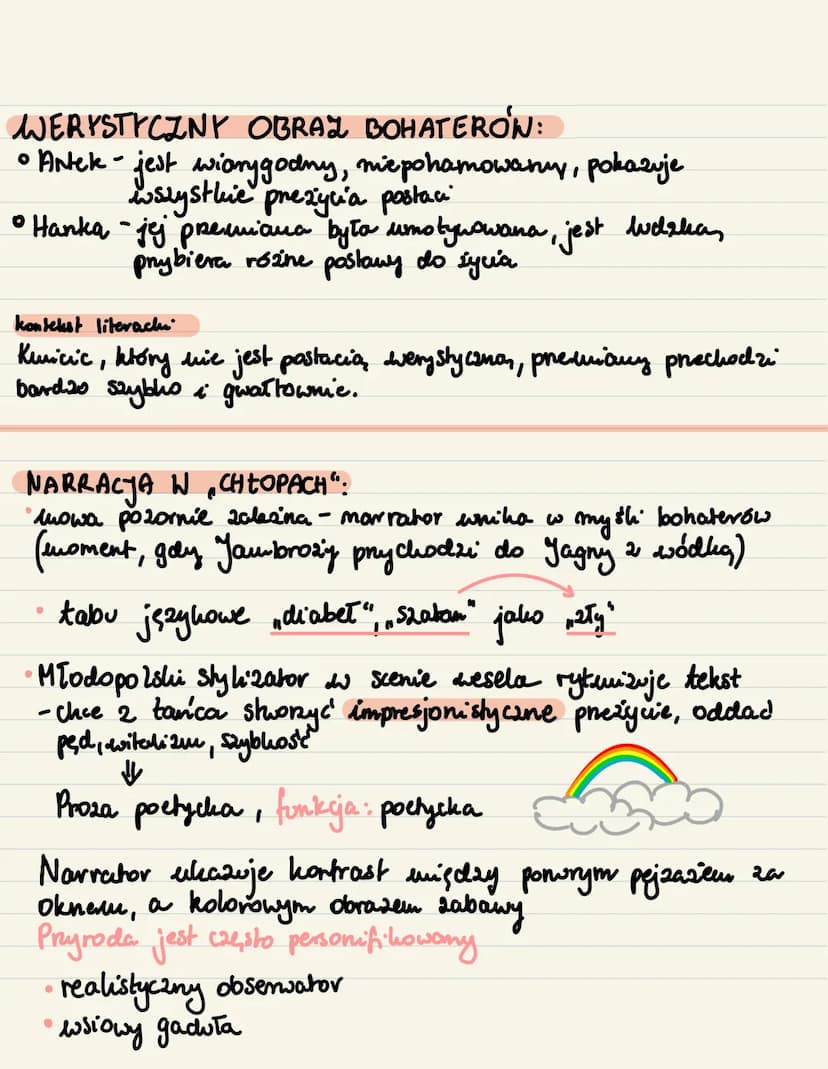 WERYSTYCZNY OBRAZ BOHATERÓW:
• Antek - jest wiarygodny, niepohamowany, pokazuje
wszystkie przeżycia postaci
• Hanka - jej przemiana była umotywowana, jest ludzka,
przybiera różne postawy do życia
kontekst literacki
Kmicic, który nie jest postacią werystyczną, przemiany przechodzi
bardzo szybko i gwałtownie.
NARRACJA W „CHŁOPACH":
• mowa pozornie zależna - narrator wnika w myśli bohaterów
(moment, gdy Jambroży przychodzi do Jagny z wódką)
• tabu językowe „diabeł", „szatan" jako „zły"
• Młodopolski stylizator w scenie wesela rytmizuje tekst
- chce z tańca stworzyć impresjonistyczne przeżycie, oddać
pęd, witalizm, szybkość
⇓
Proza poetycka, funkcja: poetycka
Narrator ukazuje kontrast między ponurym pejzażem za
oknem, a kolorowym obrazem zabawy
Przyroda jest często personifikowany
• realistyczny obserwator
• wsiowy gaduła